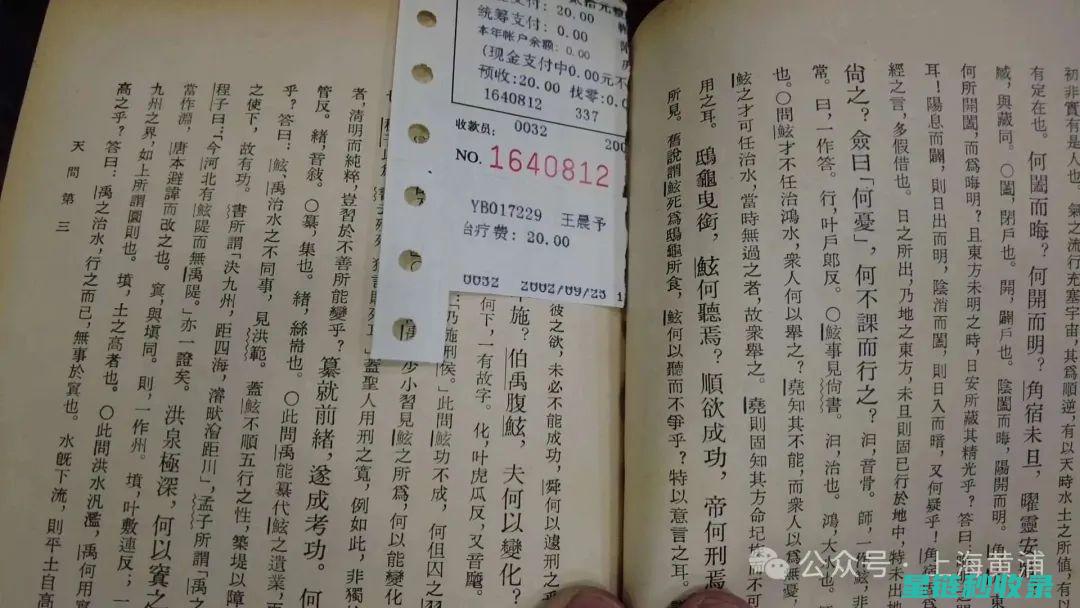 初非實有是人也。氣之流行充塞宇宙，其爲順逆
有定在也。何闔而晦？何開而明？角宿未旦，曜靈安
臧，與藏同。〇闔，閉戶也。開，闢戶也。陰闔而晦，陽開而明。
何所開闔，而爲晦明？且東方未明之時，日安所藏其精光乎？答曰
耳！陽息而闢，則日出而明，陰消而闔，則日入而暗，又何疑乎！角
經之言，多假借也。日之所出，乃地之東方，未旦則固已行於地中，特未出
尙之？僉曰「何憂」，何不課而行之？汩，音骨。師，一作
常。曰，一作答。行，叶戶郞反。〇鮌事見尙書。汩，治也。鴻，大也。
也。〇問鮌才不任治鴻水，衆人何以舉之？堯知其不能，而衆人以爲無憂，
鮌之才可任治水，當時無過之者，故衆舉之。堯則固知其方命圮族
用之耳。鴟龜曳銜，鮌何聽焉？順欲成功，帝何刑焉
所見。舊說謂鮌死爲鴟龜所食，鮌何以聽而不爭乎？特以意言之耳。
彼之欲，未必不能成功，舜何以遽刑之
施？伯禹腹鮌，夫何以變化？
何下，一有故字。化，叶虎瓜反，又音麾。
「乃施刑侯。」此問鮌功不成，何但囚之
少小習見鮌之所爲，何以能變化
者，清明而純粹，豈習於不善所能變乎？纂就前緖，遂成考功。何
蓋聖人用刑之寬，例如此，非獨
管反。緖，音敍。〇纂，集也。緖，絲耑也。〇此問禹能纂代鮌之遺業，而
乎？答曰：鮌、禹治水之不同事，見洪範。蓋鮌不順五行之性，築堤以障
之使下，故有功。書所謂「決九州，距四海，濬畎澮距川」，孟子所謂「禹
程子曰：「今河北有鮌隄而無禹隄。」亦一證矣。洪泉極深，何以窴之
當作淵，唐本避諱而改之也。窴，與塡同。則，一作州。墳，叶敷連反；一
九州之界，如上所謂圜則也。墳，土之高者也。〇此問洪水汎濫，禹何用窴
高之乎？答曰：禹之治水，行之而已，無事於窴也。水旣下流，則平土自高
天問第三
支付：20.00
统筹支付：0.00
本年帐户余额：0.00
(现金支付中0.00元不
预收:20.00 找零:0.0
1640812 337
收款员： 0032 200
NO. 1640812
YB017229 王晨予
治疗费：20.00
0032 2002/09/25 1
公众号·上海黄浦
星链秒收录